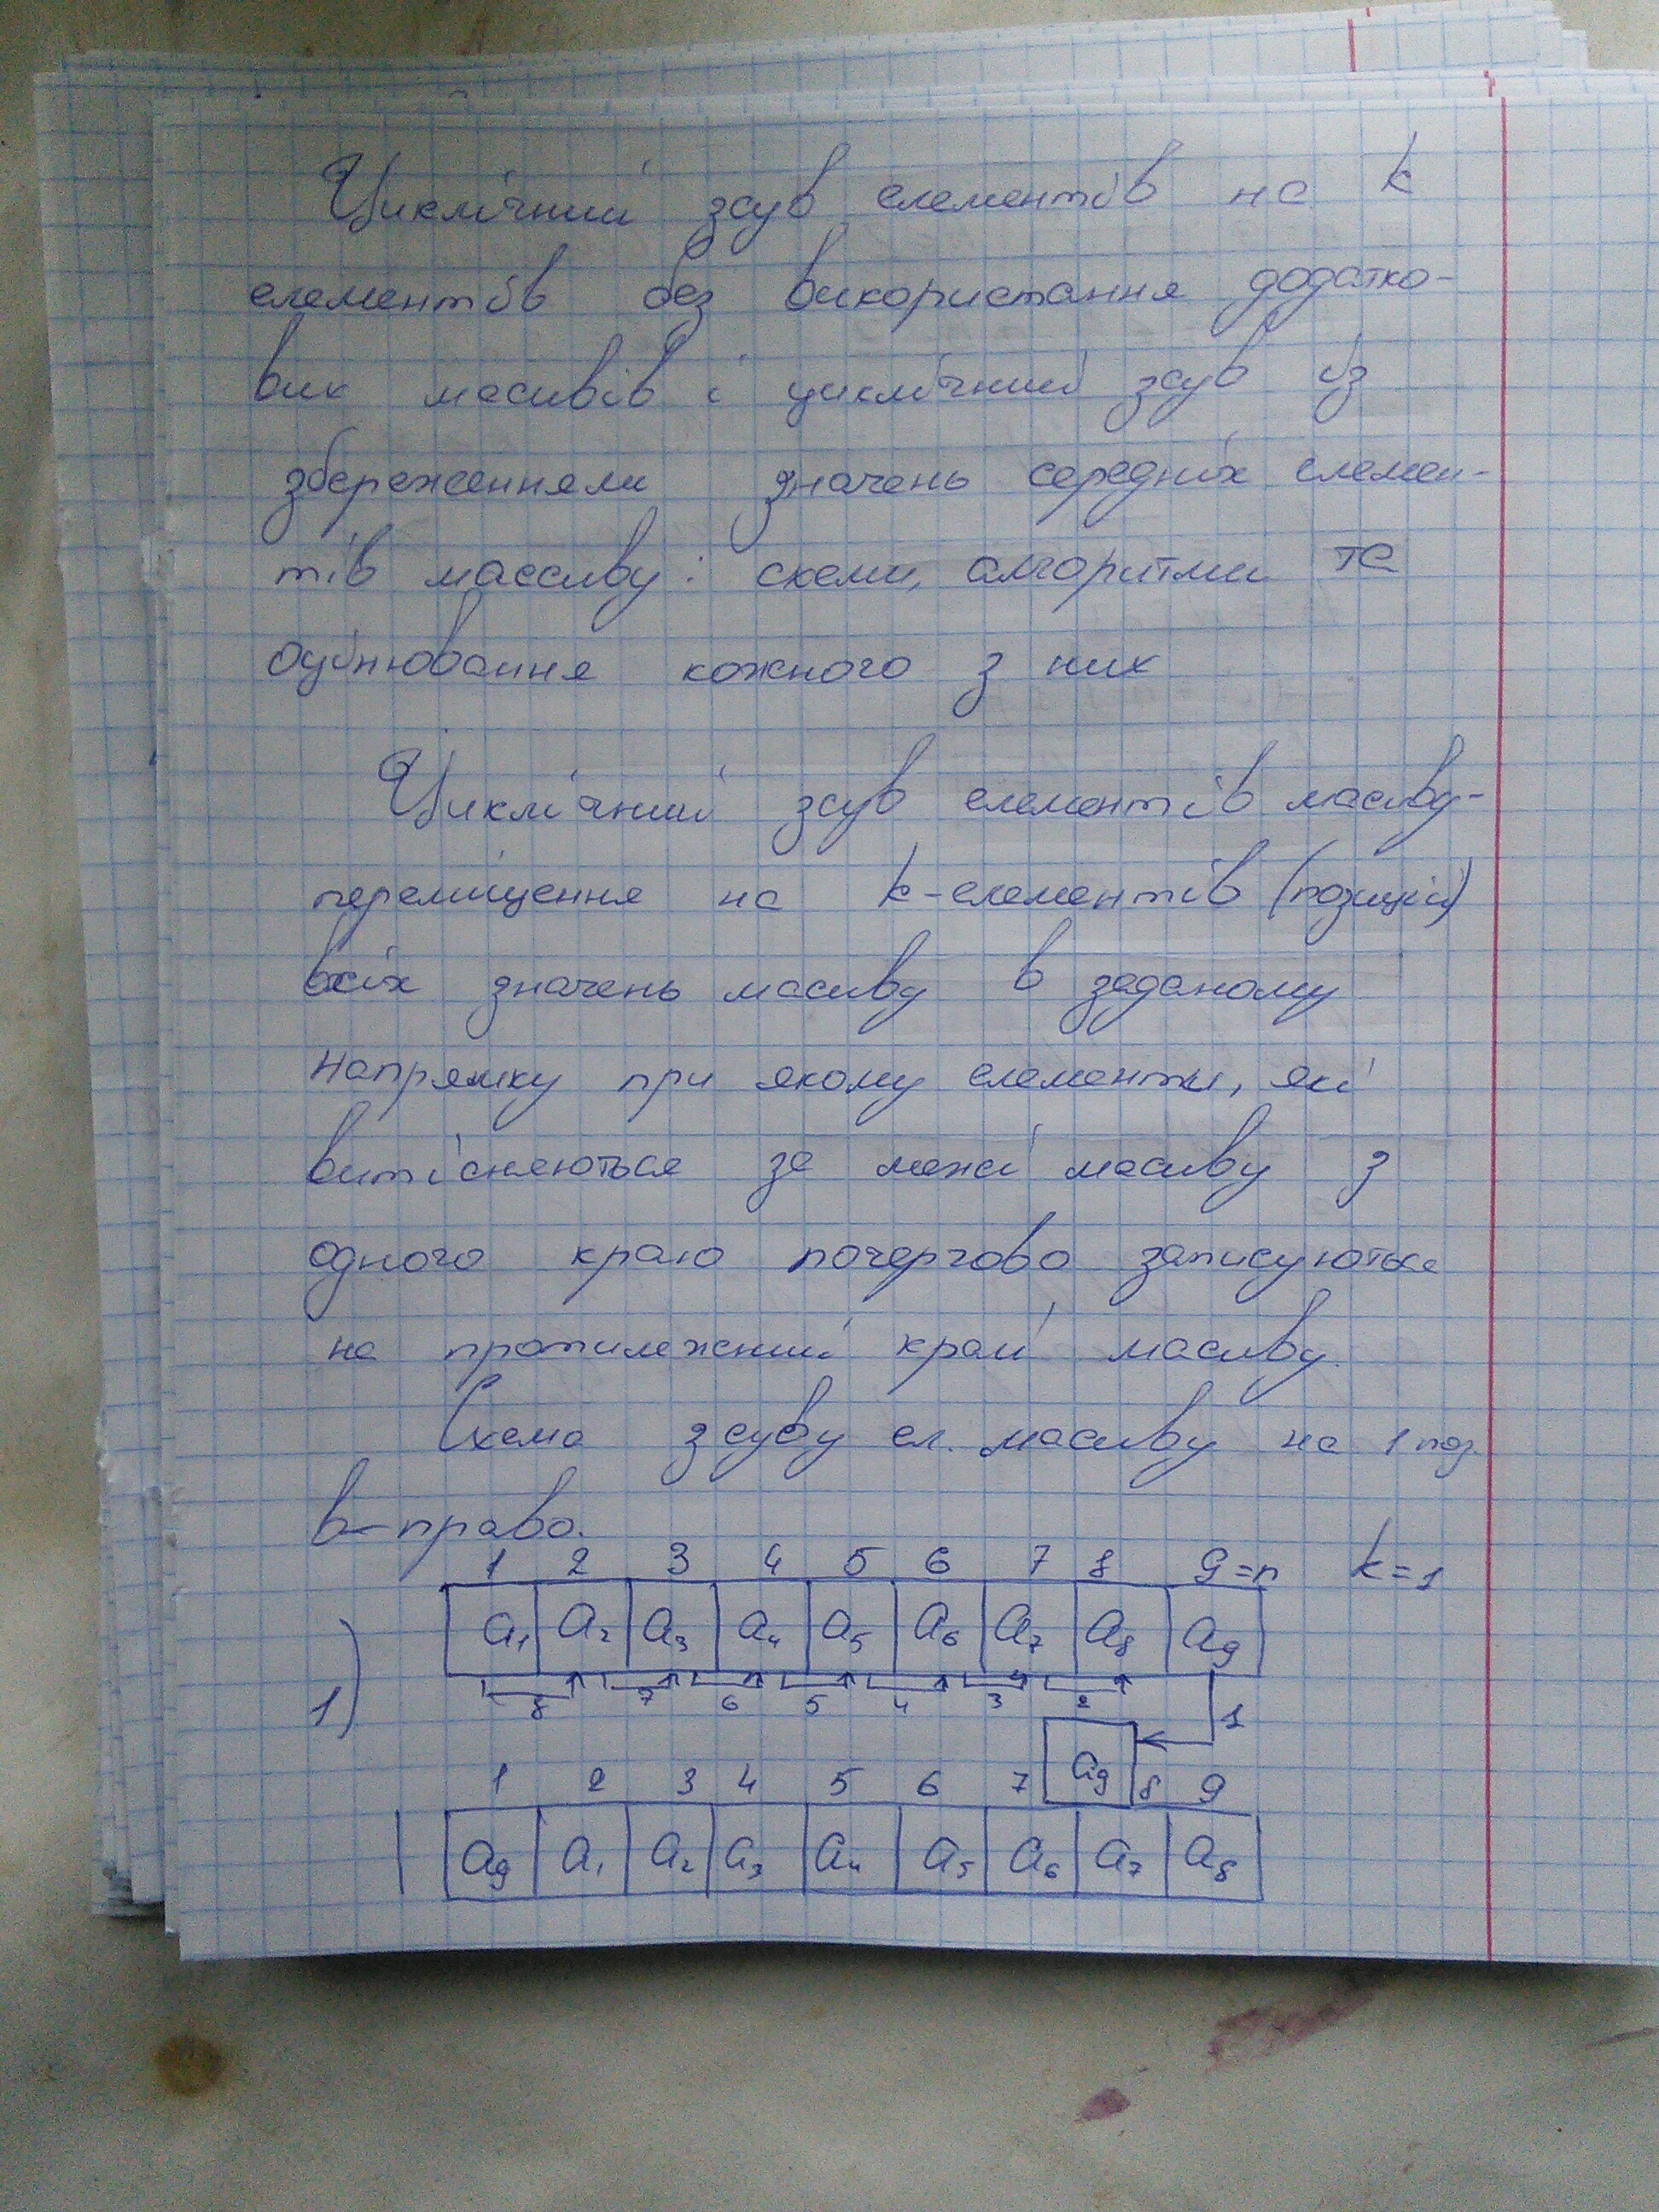 Циклічний зсув елементів на k
елементів без використання додатко-
вих масивів і циклічний зсув із
збереженням значень середніх елемен-
тів массиву: схеми, алгоритми та
оцінювання кожного з них
Циклічний зсув елементів масиву-
переміщення на k-елементів (позицій)
всіх значень масиву в заданому
напрямку при якому елементи, які
витісняються за межі масиву з
одного краю почергово записуються
на протилежний край масиву.
Схема зсуву ел. масиву на 1 поз.
в-право.
1 2 3 4 5 6 7 8 9=n k=1
a₁ a₂ a₃ a₄ a₅ a₆ a₇ a₈ a₉
8 7 6 5 4 3 2 1
1)
a₉
1 2 3 4 5 6 7 8 9
a₉ a₁ a₂ a₃ a₄ a₅ a₆ a₇ a₈